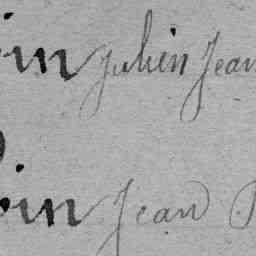 in Julien Jean
in Jean